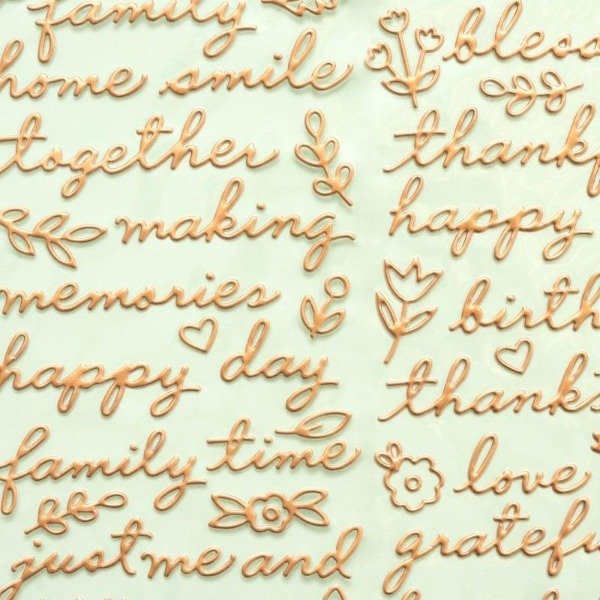 family
home smile
together
making
memories
happy day
family time
just me and
bless
thankf
happy
birth
thanks
love
gratefu